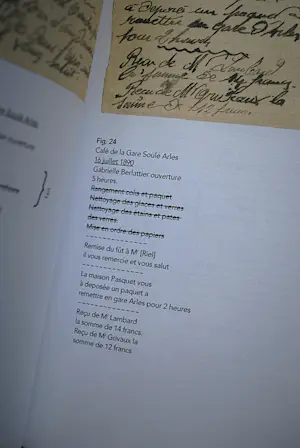 à déposé un paquet a
remettre en gare d'Arles
pour 2 heures
Reçu de Mr Lambard
la somme de 14 francs
Reçu de Mr Grivaux la
somme de 12 francs
Fig. 24
Café de la Gare Soulè Arles
16 juillet 1890
Gabrielle Berlattier ouverture
5 heures.
Rangement cola et paquet
Nettoyage des glaces et verres
Nettoyage des étains et pates
des verres
Mise en ordre des papiers
Remise du fût à Mr [Riel]
il vous remercie et vous salut
La maison Pasquet vous
à déposée un paquet a
remettre en gare Arles pour 2 heures
Reçu de Mr Lambard
la somme de 14 francs.
Reçu de Mr Grivaux la
somme de 12 francs